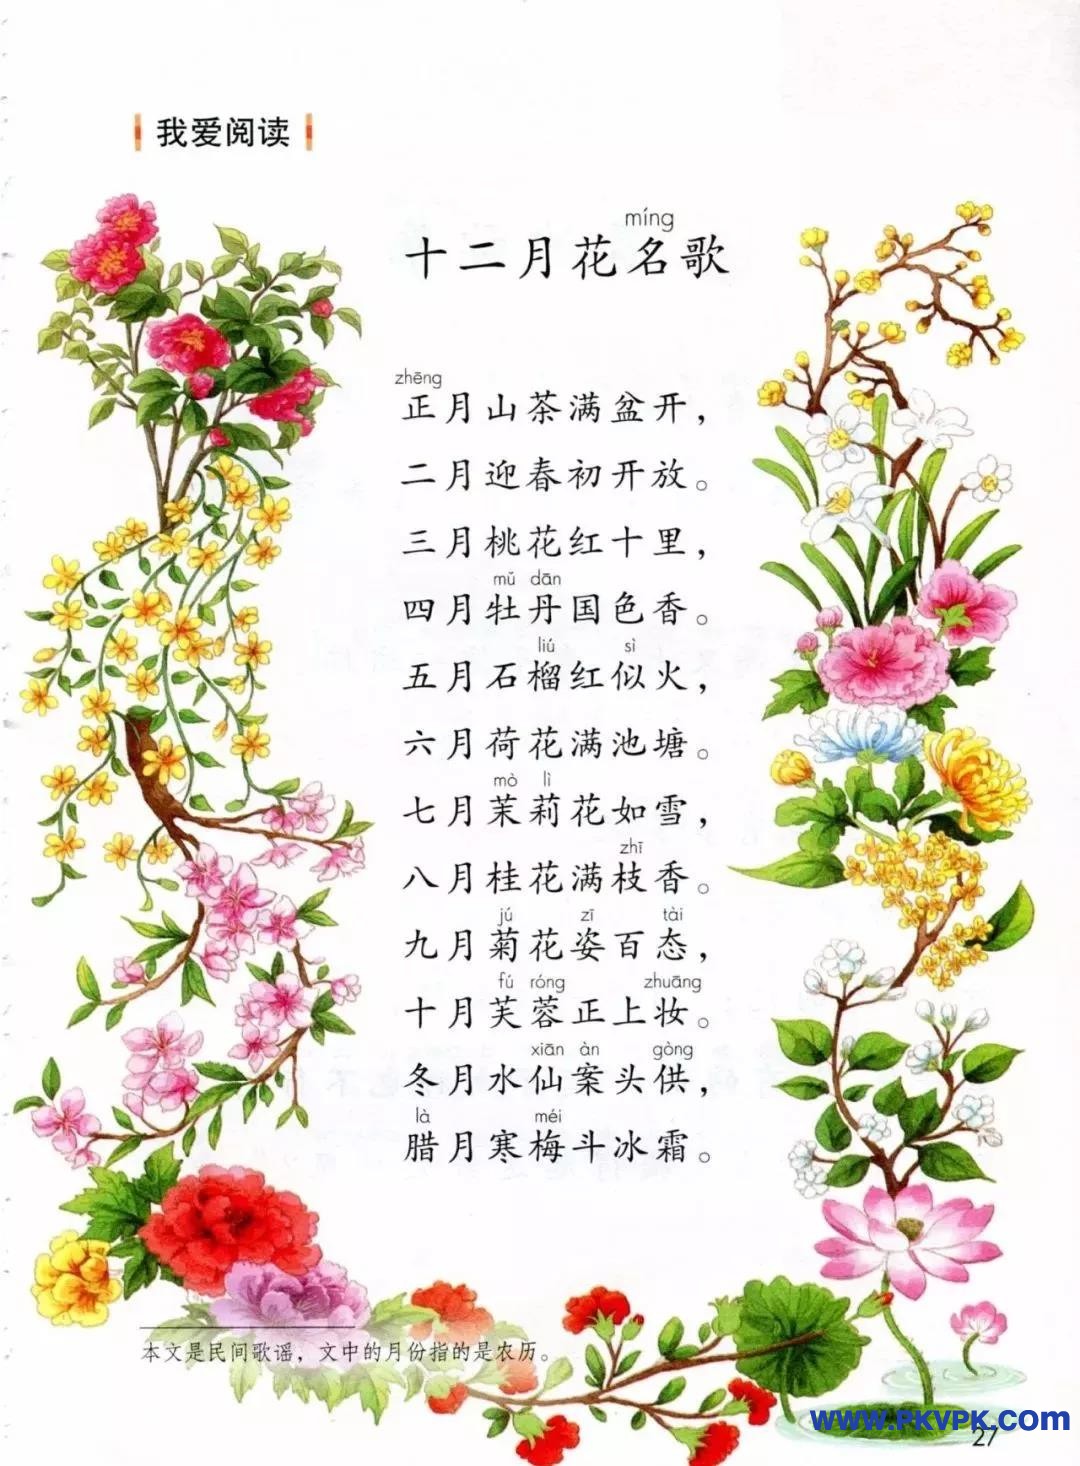 我爱阅读
míng
十二月花名歌
zhēng
正月山茶满盆开，
二月迎春初开放。
三月桃花红十里，
mǔ dān
四月牡丹国色香。
liú sì
五月石榴红似火，
六月荷花满池塘。
mò lì
七月茉莉花如雪，
zhī
八月桂花满枝香。
jú zī tài
九月菊花姿百态，
fú róng zhuāng
十月芙蓉正上妆。
xiān àn gòng
冬月水仙案头供，
là méi
腊月寒梅斗冰霜。
本文是民间歌谣，文中的月份指的是农历。
www.PKVPK.com
27